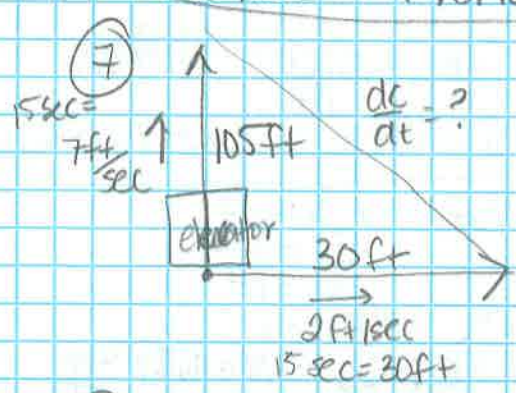 7
15sec=
7ft/sec
105ft
dc/dt = ?
elevator
30ft
2ft/sec
15 sec=30ft